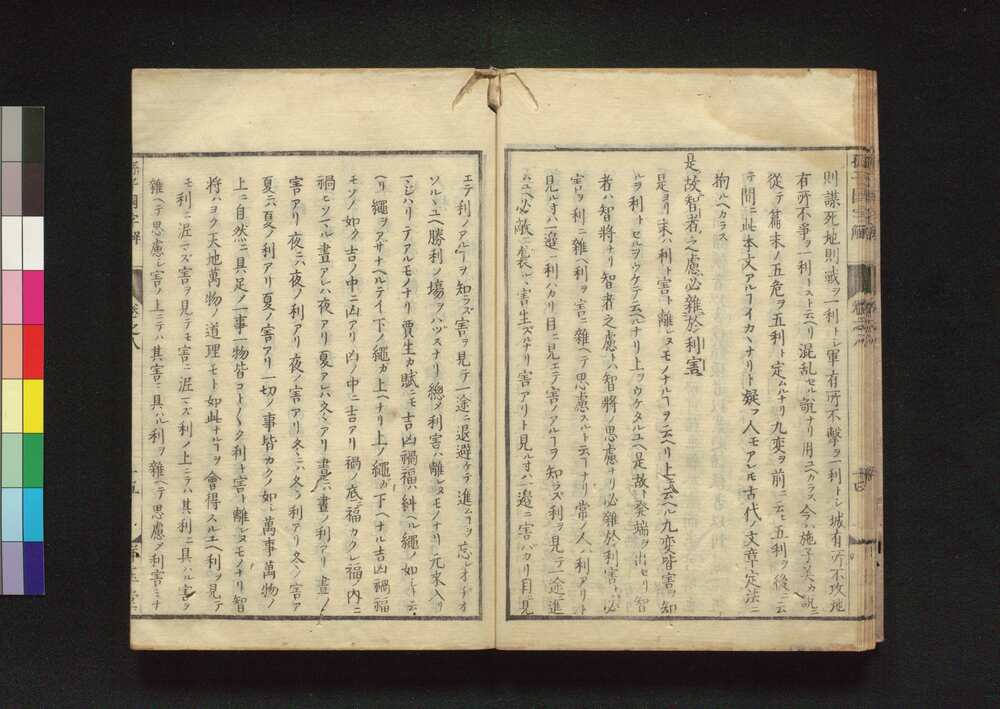 則謀死地則戰ヲ一利トシ軍有所不擊ヲ一利トシ城有所不攻地
有所不爭ヲ一利トスト云ヘリ混乱セル說ナリ用ユヘカラス今ハ施子美カ說ニ
從テ篇末ノ五危ヲ五利ト定ムルナリ九変ヲ前ニ云ヒ五利ヲ後ニ云
テ間ニ此本文アルヿイカヽナリト疑フ人モアレ𪜈古代ノ文章定法ニ
拘ルヘカラス
是故智者之慮必雜於利害
是ヨリ末ハ利ト害ト離レヌモノナルヿヲ云ヘリ上ニ云ヘル九変皆害ヲ知
ルヲ利トセルヲウケテ云ヘルナリ上ヲウケタルユヘ是故ト發端ヲ出セリ智
者ハ智將ナリ智者之慮トハ智將ノ思慮ナリ必雜於利害トハ必
害ヲ利ニ雜ヘ利ヲ害ニ雜ヘテ思慮スルト云ヿナリ常ノ人ハ利アリト
見ル寸ハ一邉ニ利ハカリ目ニ見エテ害ノアルヿヲ知ラズ利ヲ見テ一途ニ進
ムユヘ必敵ニ襲ハレ害生ズルナリ害アリト見ル寸ハ一邉ニ害バカリ目ニ見
エテ利ノアルヿヲ知ラズ害ヲ見テ一途ニ退避ケテ進ムヿヲ忘レオチオ
ソルヽユヘ勝利ノ塲ヲハヅスナリ總メ利害ハ離レヌモノナリ元來入リ
マジハリテアルモノナリ賈生カ賦ニモ吉凶禍福ハ糾ヘル繩ノ如シト云
ヘリ繩ヲアザナヘルテイ下ノ繩ガ上ヘナリ上ノ繩ガ下ヘナル吉凶禍福
モソノ如ク吉ノ中ニ凶アリ凶ノ中ニ吉アリ禍ノ底ニ福カクレ福ノ内ニ
禍ヒソマル晝アレハ夜アリ夏アレハ冬アリ晝ニハ晝ノ利アリ晝ノ
害アリ夜ニハ夜ノ利アリ夜ノ害アリ冬ニハ冬ノ利アリ冬ノ害ア
夏ニハ夏ノ利アリ夏ノ害アリ一切ノ事皆カクノ如シ萬事萬物ノ
上ニ自然ニ具足メ一事一物皆コト〱ク利ト害ト離レヌモノナリ智
將ハヨク天地萬物ノ道理モト如此ナルヿヲ會得スルユヘ利ヲ見テ
モ利ニ泥マズ害ヲ見テモ害ニ泥マズ利ノ上ニテハ其利ニ具ハル害ヲ
雜ヘテ思慮シ害ノ上ニテハ其害ニ具ハル利ヲ雜ヘテ思慮メ利害ミナ
孫子國字解
卷之八